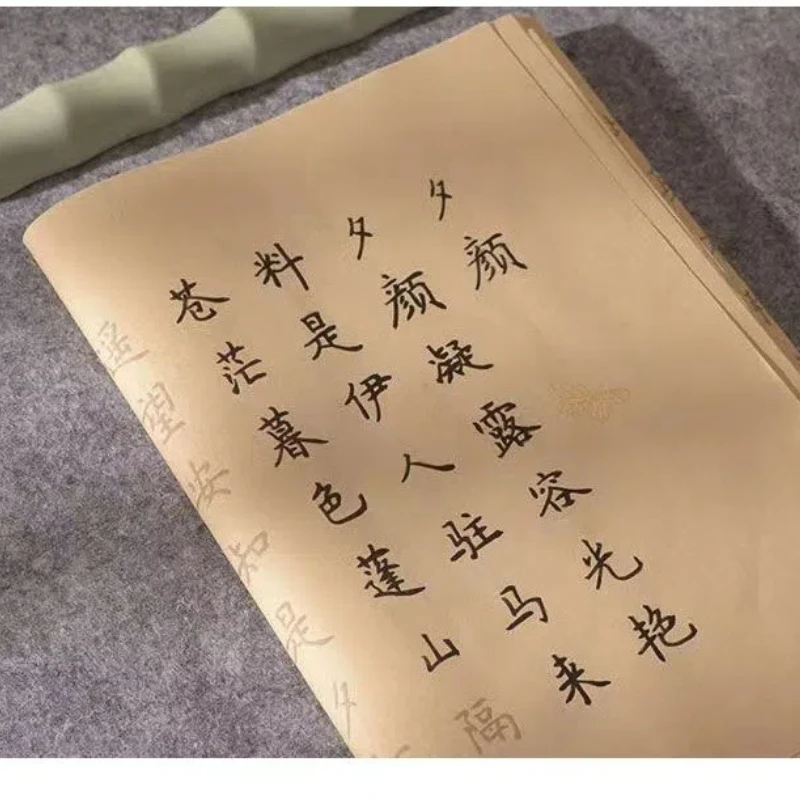 夕颜
夕颜凝露容光艳
料是伊人驻马来
苍茫暮色蓬山隔
遥望安知是夕